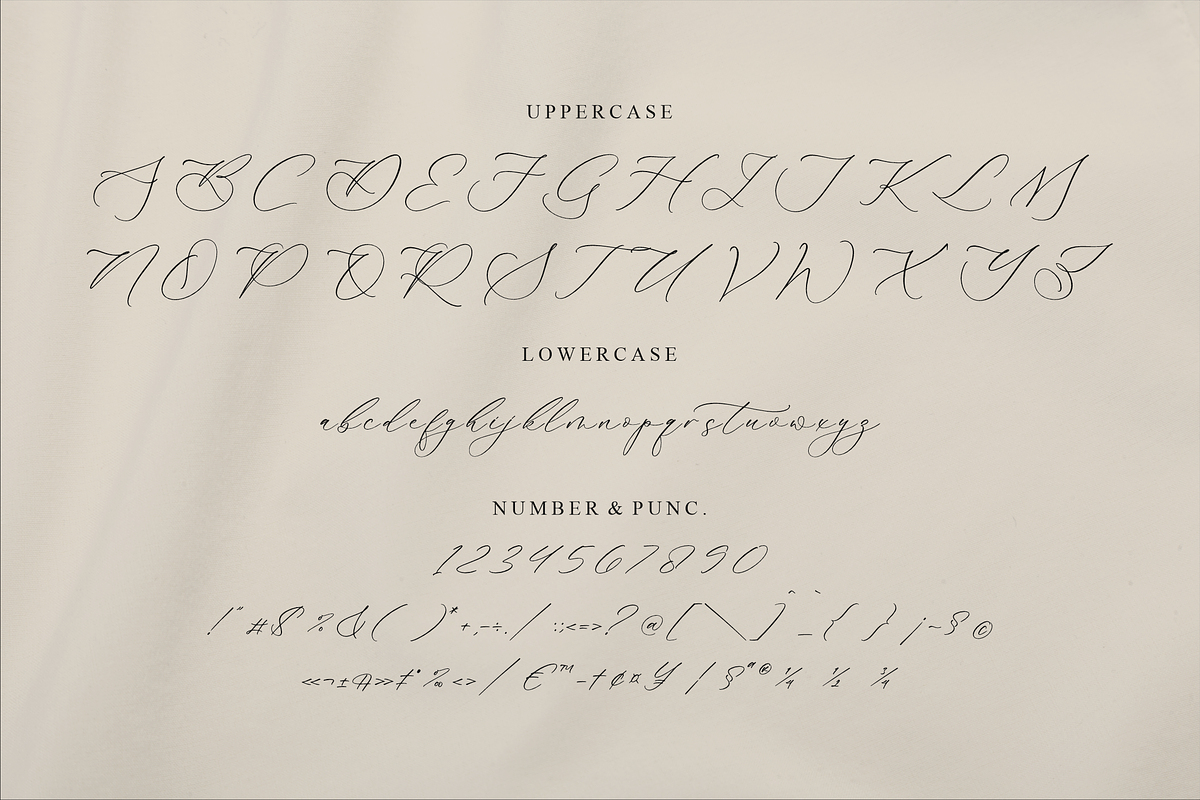 UPPERCASE
A B C D E F G H I J K L M
N O P Q R S T U V W X Y Z
LOWERCASE
abcdefghijklmnopqrstuvwxyz
NUMBER & PUNC.
1234567890
!"#$%&( )*+,-÷./:;<=>?@[\]^_`{ }¡~§©
«¬±Ꞵ»‡°‰<>/€™-†¢¤¥|§ª®¼ ½ ¾